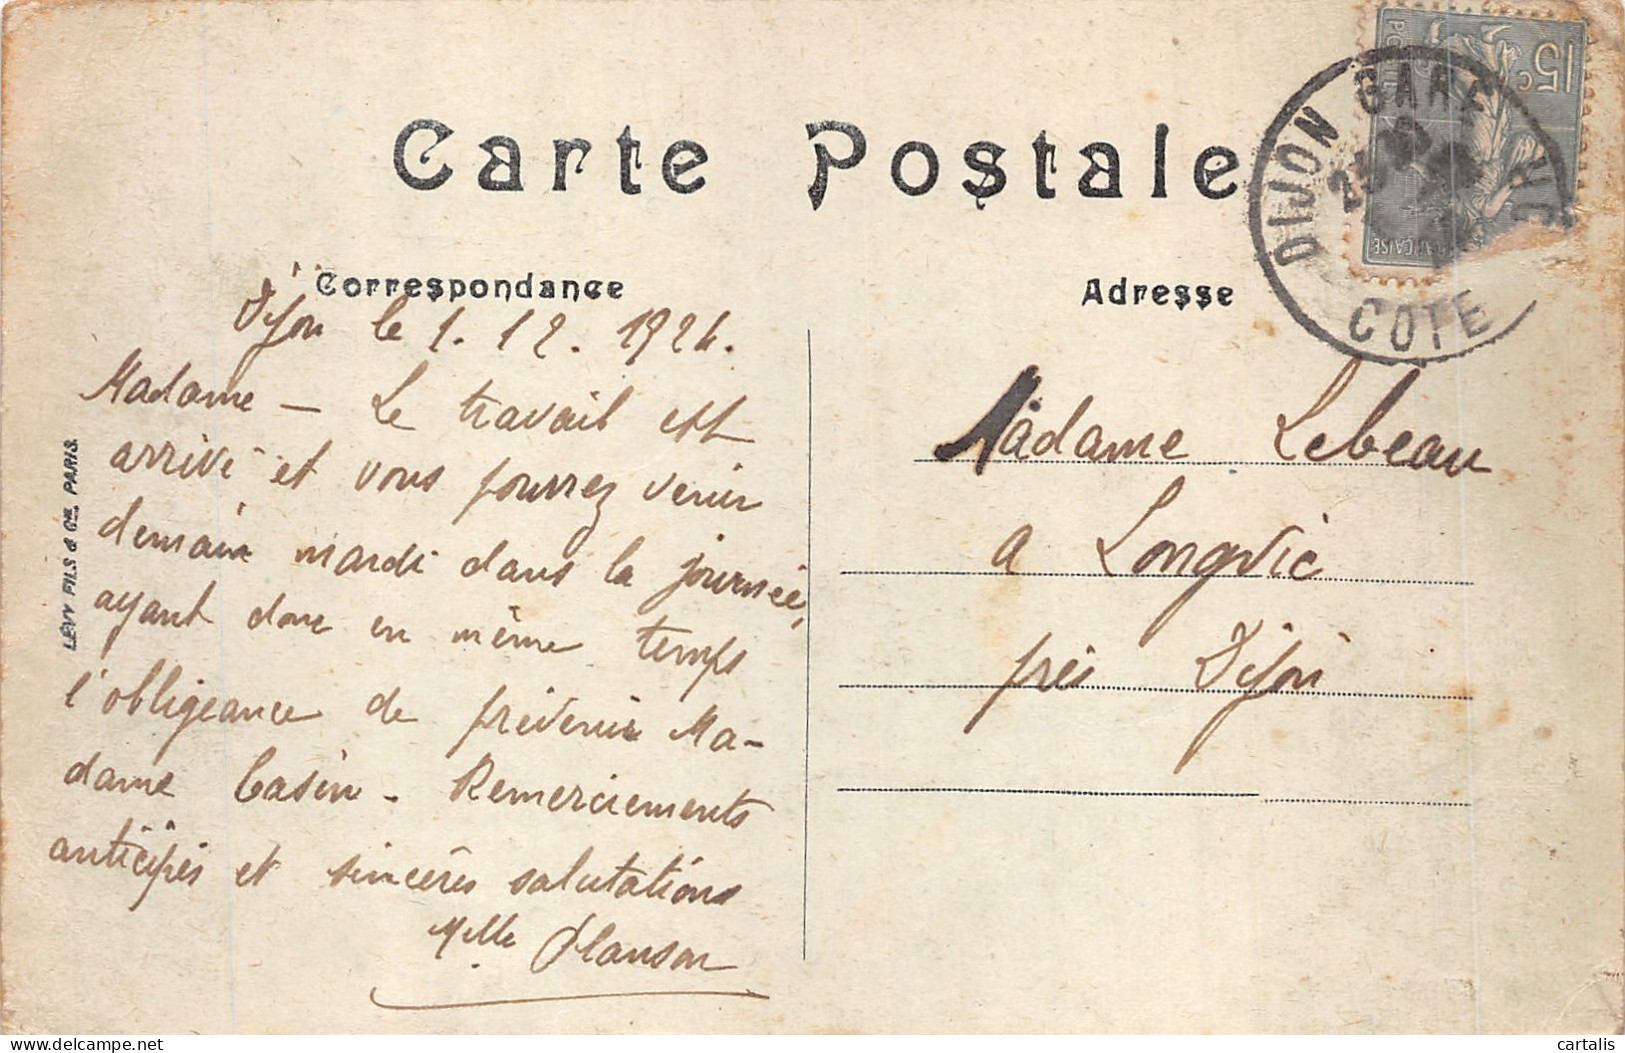 Carte Postale
Correspondance
Dijon le 1. 12. 1924.
Madame - Le travail est
arrivé et vous pourrez venir
demain mardi dans la journée,
ayant donc en même temps
l'obligeance de prévenir Ma-
dame Casin - Remerciements
anticipés et sincères salutations
Melle
LEVY FILS & Cie PARIS.
Adresse
Madame Lebeau
a Longvic
près Dijon
15c
DIJON GARE
25
COTE
delcampe.net
cartalis